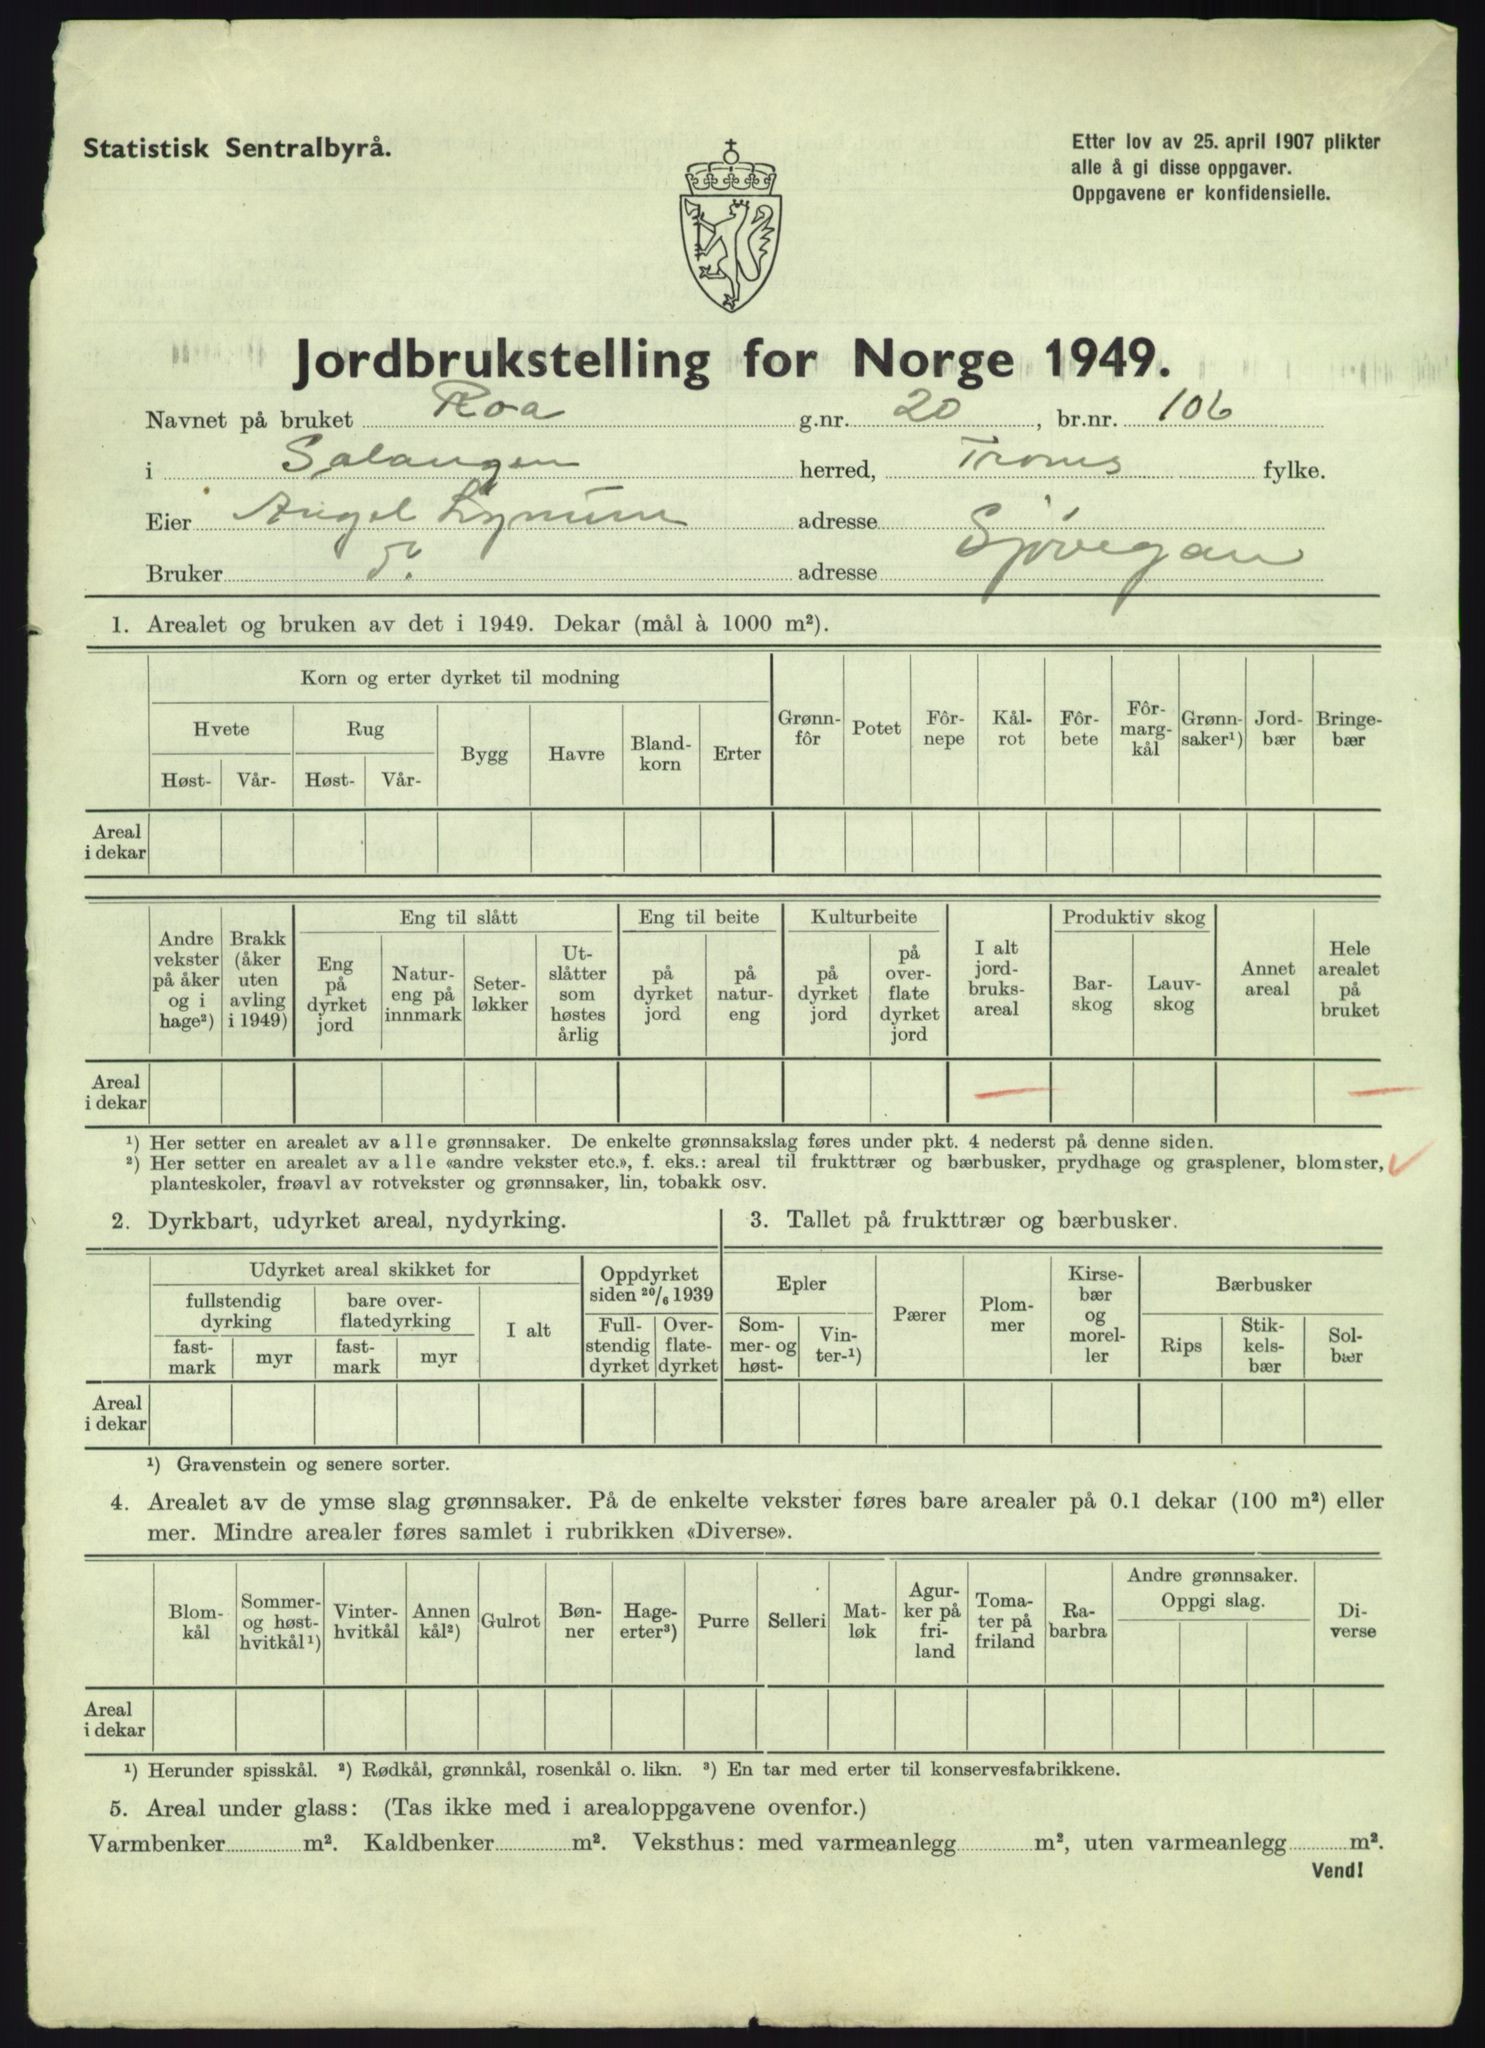 Statistisk Sentralbyrå.
Etter lov av 25. april 1907 plikter
alle å gi disse oppgaver.
Oppgavene er konfidensielle.
Jordbrukstelling for Norge 1949.
Navnet på bruket Roa g.nr. 20, br.nr. 106
i Salangen herred, Troms fylke.
Eier Angel adresse Sjøvegan
Bruker adresse
1. Arealet og bruken av det i 1949. Dekar (mål à 1000 m²).
Korn og erter dyrket til modning
Hvete Rug
Høst- Vår- Høst- Vår- Bygg Havre
Bland-
korn
Erter
Grønn-
fôr
Potet
Fôr-
nepe
Kål-
rot
Fôr-
bete
Fôr-
marg-
kål
Grønn-
saker¹)
Jord-
bær
Bringe-
bær
Areal
i dekar
Andre
vekster
på åker
og i
hage²)
Brakk
(åker
uten
avling
i 1949)
Eng til slått
Eng
på
dyrket
jord
Natur-
eng på
innmark
Seter-
løkker
Ut-
slåtter
som
høstes
årlig
Eng til beite
på
dyrket
jord
på
natur-
eng
Kulturbeite
på
dyrket
jord
på
over-
flate
dyrket
jord
I alt
jord-
bruks-
areal
Produktiv skog
Bar-
skog
Lauv-
skog
Annet
areal
Hele
arealet
på
bruket
Areal
i dekar
¹) Her setter en arealet av alle grønnsaker. De enkelte grønnsakslag føres under pkt. 4 nederst på denne siden.
²) Her setter en arealet av alle «andre vekster etc.», f. eks.: areal til frukttrær og bærbusker, prydhage og grasplener, blomster,
planteskoler, frøavl av rotvekster og grønnsaker, lin, tobakk osv.
2. Dyrkbart, udyrket areal, nydyrking.
Udyrket areal skikket for
fullstendig
dyrking
bare over-
flatedyrking
fast-
mark
myr
fast-
mark
myr
I alt
Oppdyrket
siden 20/6 1939
Full-
stendig
dyrket
Over-
flate-
dyrket
Areal
i dekar
3. Tallet på frukttrær og bærbusker.
Epler
Som-
mer- og
høst-
Vin-
ter-¹)
Pærer
Plom-
mer
Kirse-
bær
og
morel-
ler
Bærbusker
Rips
Stik-
kels-
bær
Sol-
bær
¹) Gravenstein og senere sorter.
4. Arealet av de ymse slag grønnsaker. På de enkelte vekster føres bare arealer på 0.1 dekar (100 m²) eller
mer. Mindre arealer føres samlet i rubrikken «Diverse».
Blom-
kål
Sommer-
og høst-
hvitkål¹)
Vinter-
hvitkål
Annen
kål²)
Gulrot
Bøn-
ner
Hage-
erter³)
Purre
Selleri
Mat-
løk
Agur-
ker på
fri-
land
Toma-
ter på
friland
Ra-
barbra
Andre grønnsaker.
Oppgi slag.
Di-
verse
Areal
i dekar
¹) Herunder spisskål. ²) Rødkål, grønnkål, rosenkål o. likn. ³) En tar med erter til konservesfabrikkene.
5. Areal under glass: (Tas ikke med i arealoppgavene ovenfor.)
Varmbenker m². Kaldbenker m². Veksthus: med varmeanlegg m², uten varmeanlegg m².
Vend!